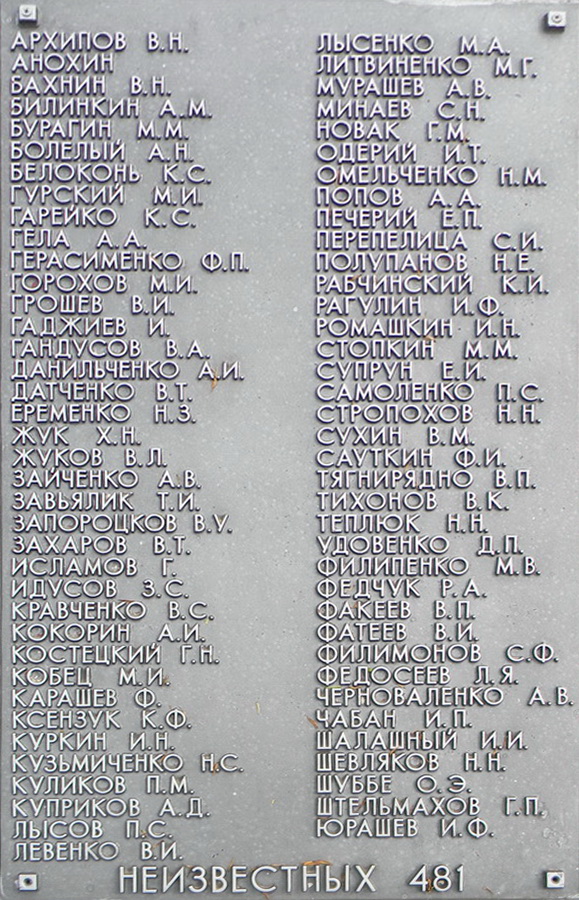 АРХИПОВ В.Н.
АНОХИН
БАХНИН В.Н.
БИЛИНКИН А.М.
БУРАГИН М.М.
БОЛЕЛЫЙ А.Н.
БЕЛОКОНЬ К.С.
ГУРСКИЙ М.И.
ГАРЕЙКО К.С.
ГЕЛА А.А.
ГЕРАСИМЕНКО Ф.П.
ГОРОХОВ М.И.
ГРОШЕВ В.И.
ГАДЖИЕВ И.
ГАНДУСОВ В.А.
ДАНИЛЬЧЕНКО А.И.
ДАТЧЕНКО В.Т.
ЕРЕМЕНКО Н.З.
ЖУК Х.Н.
ЖУКОВ В.Л.
ЗАЙЧЕНКО А.В.
ЗАВЬЯЛИК Т.И.
ЗАПОРОЦКОВ В.У.
ЗАХАРОВ В.Т.
ИСЛАМОВ Г.
ИДУСОВ З.С.
КРАВЧЕНКО В.С.
КОКОРИН А.И.
КОСТЕЦКИЙ Г.Н.
КОБЕЦ М.И.
КАРАШЕВ Ф.
КСЕНЗУК К.Ф.
КУРКИН И.Н.
КУЗЬМИЧЕНКО Н.С.
КУЛИКОВ П.М.
КУПРИКОВ А.Д.
ЛЫСОВ П.С.
ЛЕВЕНКО В.И.
ЛЫСЕНКО М.А.
ЛИТВИНЕНКО М.Г.
МУРАШЕВ А.В.
МИНАЕВ С.Н.
НОВАК Г.М.
ОДЕРИЙ И.Т.
ОМЕЛЬЧЕНКО Н.М.
ПОПОВ А.А.
ПЕЧЕРИЙ Е.П.
ПЕРЕПЕЛИЦА С.И.
ПОЛУПАНОВ Н.Е.
РАБЧИНСКИЙ К.И.
РАГУЛИН И.Ф.
РОМАШКИН И.Н.
СТОПКИН М.М.
СУПРУН Е.И.
САМОЛЕНКО П.С.
СТРОПОХОВ Н.Н.
СУХИН В.М.
САУТКИН Ф.И.
ТЯГНИРЯДНО В.П.
ТИХОНОВ В.К.
ТЕПЛЮК Н.Н.
УДОВЕНКО Д.П.
ФИЛИПЕНКО М.В.
ФЕДЧУК Р.А.
ФАКЕЕВ В.П.
ФАТЕЕВ В.И.
ФИЛИМОНОВ С.Ф.
ФЕДОСЕЕВ Л.Я.
ЧЕРНОВАЛЕНКО А.В.
ЧАБАН И.П.
ШАЛАШНЫЙ И.И.
ШЕВЛЯКОВ Н.Н.
ШУББЕ О.Э.
ШТЕЛЬМАХОВ Г.П.
ЮРАШЕВ И.Ф.
НЕИЗВЕСТНЫХ 481